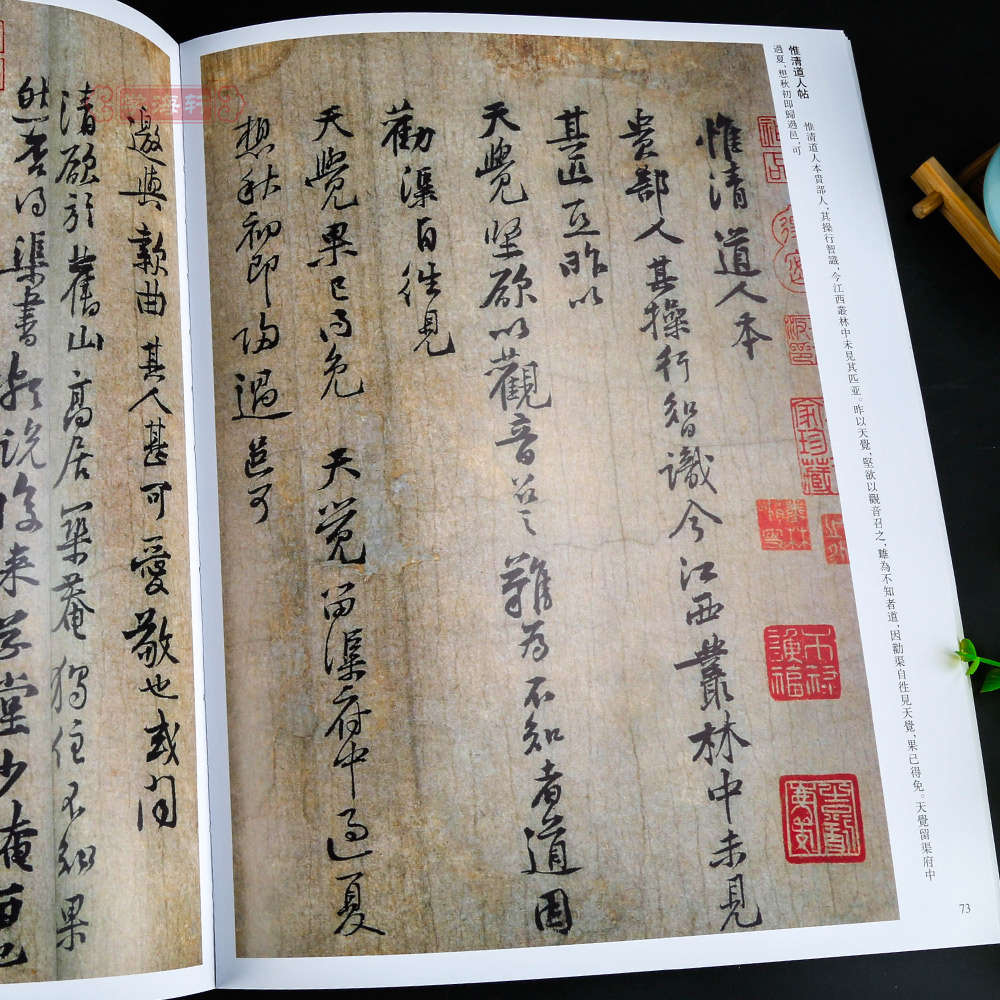 惟清道人帖
惟清道人本貴部人，其操行智識，今江西叢林中未見其匹亚。昨以天覺，堅欲以觀音召之，難為不知者道，因勸渠自往見天覺，果已得免。天覺留渠府中
過夏，想秋初即歸過邑，可
惟清道人本
貴部人其操行智識今江西叢林中未見
其匹亚昨以
天覺堅欲以觀音召之難為不知者道因
勸渠自往見
天覺果已得免天覺留渠府中過夏
想秋初即歸過邑可
邀與款曲其人甚可愛敬也或聞
清欲於舊山高居築菴獨住不知果
然否得渠書
家珍藏
73